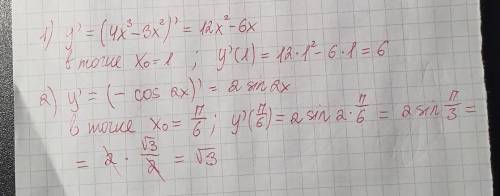 1) y' = (4x³-3x²)' = 12x²-6x
в точке x₀=1 ; y'(1) = 12·1²-6·1 = 6
2) y' = (- cos 2x)' = 2 sin 2x
в точке x₀ = π/6 ; y'(π/6) = 2 sin 2·π/6 = 2 sin π/3 =
= 2 · √3/2 = √3